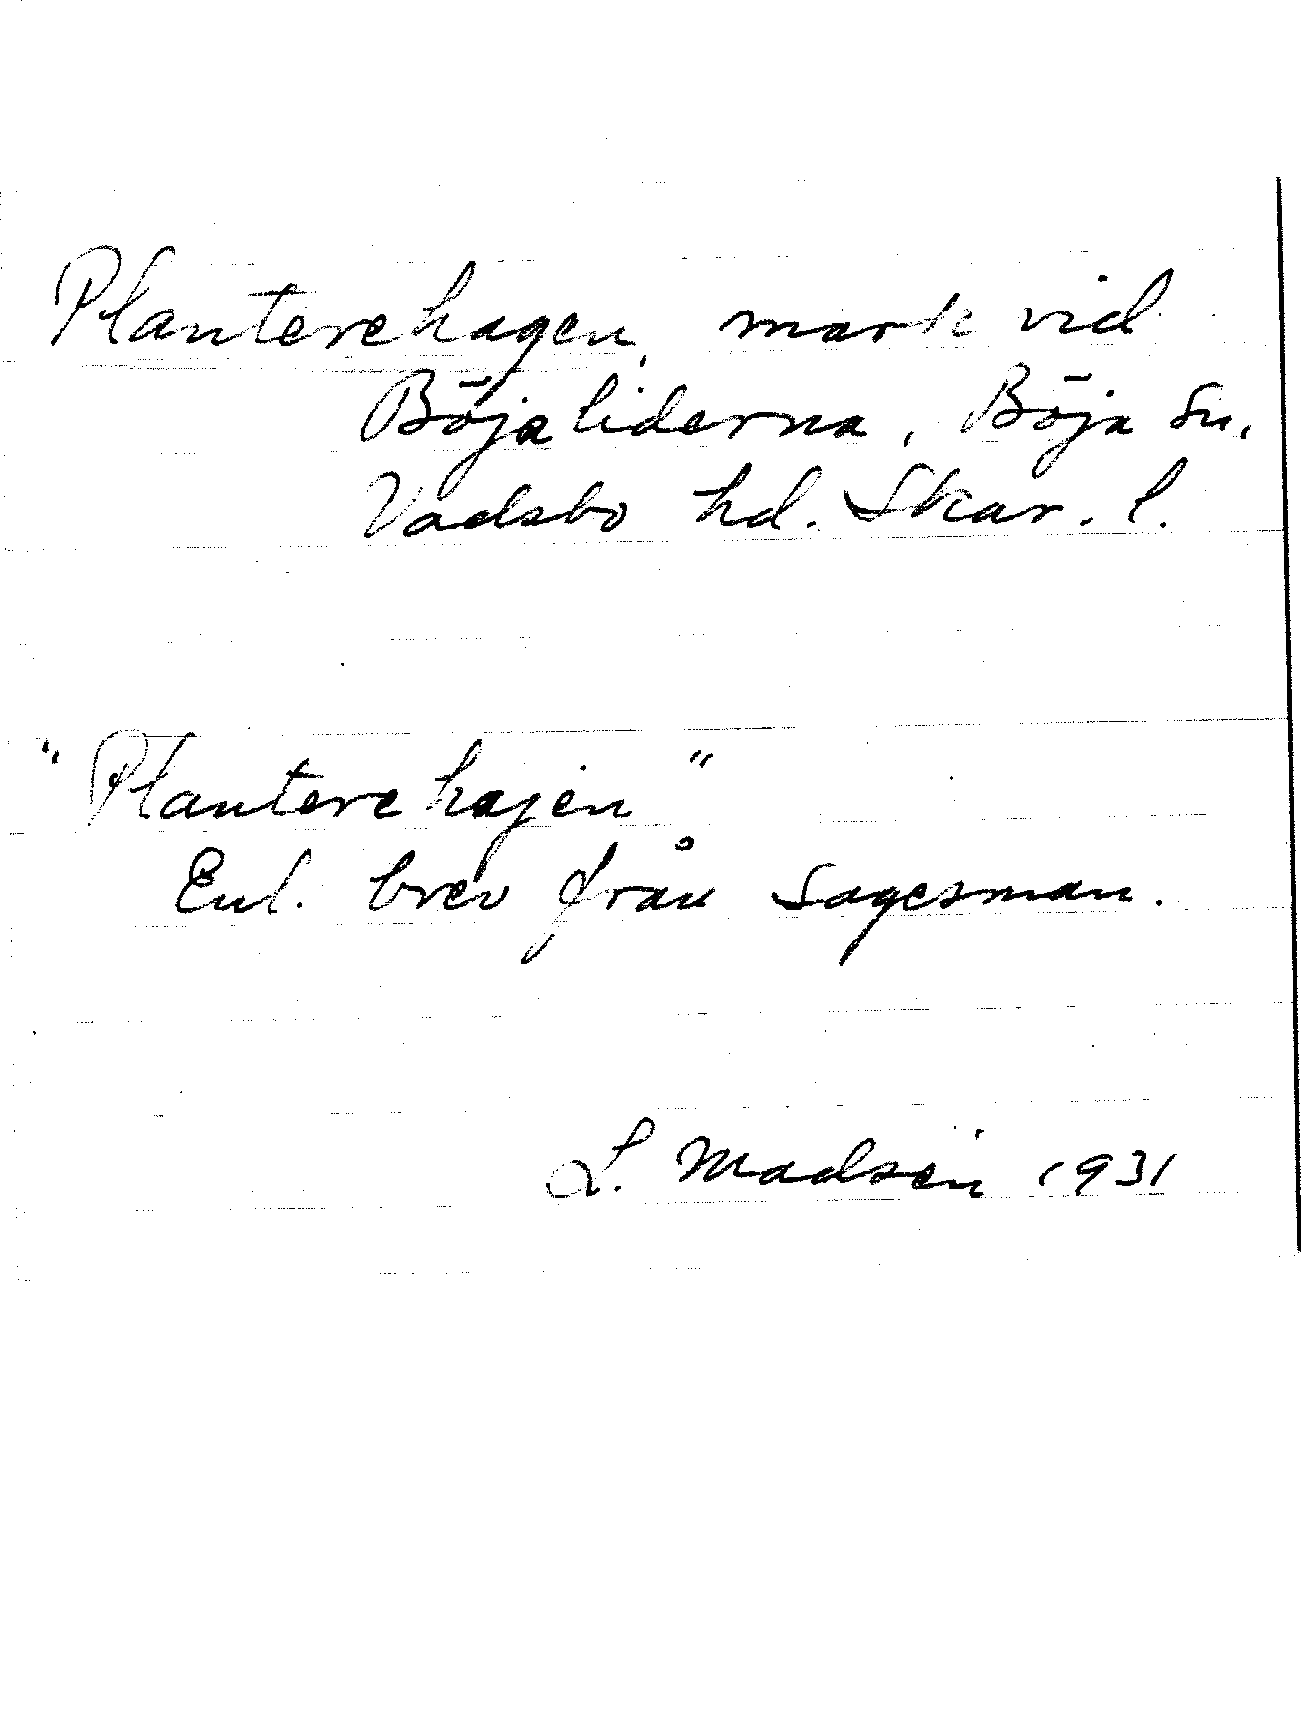 Planterehagen, mark vid
Böjaliderna, Böja sn,
Vadsbo hd. Skar. l.
"Planterehajen"
Enl. brev från sagesman.
L. Madsén 1931